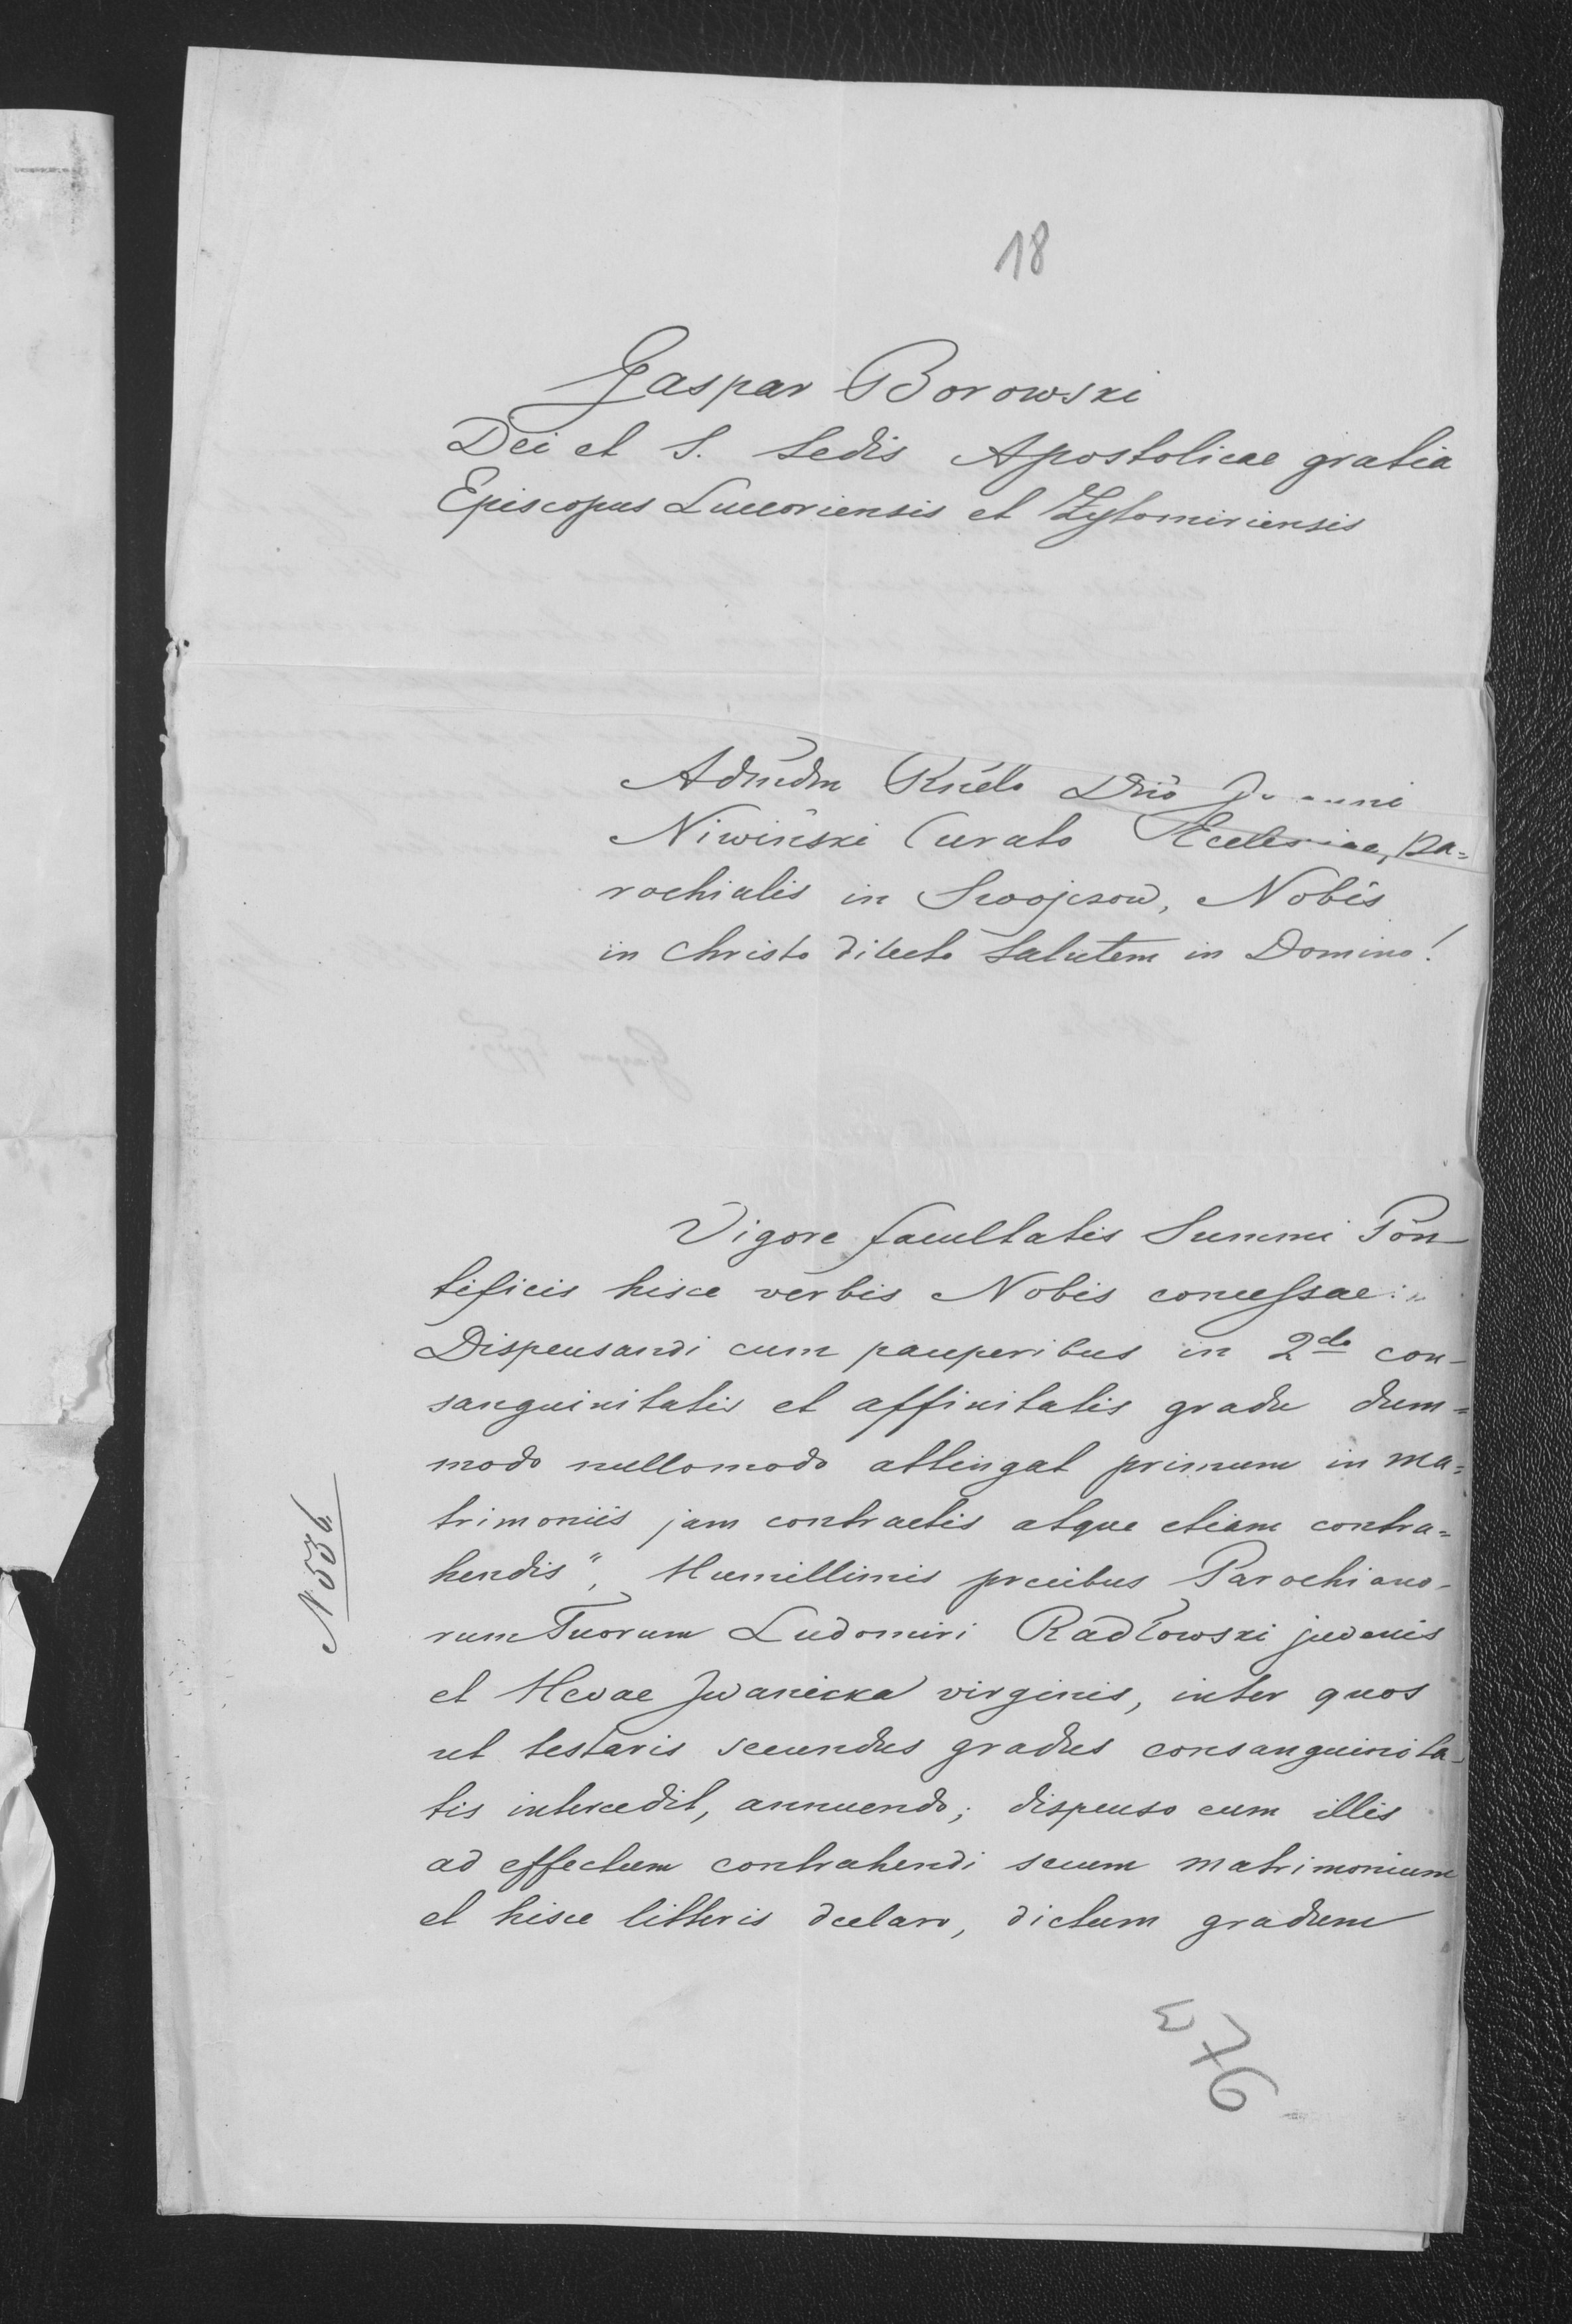 18
Gaspar Borowski
Dei et S. Sedis Apostolicae gratia
Episcopus Luceoriensis et Zytomiriensis
Admdm Rndo Dno
Niwiński Curato Ecclesiae, pa=
rochialis in Swojczow, Nobis
in Christo dilecto Salutem in Domino!
Vigore facultatis Summi Pon
tificis hisce verbis Nobis concessae: „
Dispensandi cum pauperibus in 2do con-
sanguinitatis et affinitatis gradu dum=
modo nullomodo attingat primum in ma=
trimoniis jam contractis atque etiam contra=
hendis", Humillimis precibus Parochiano-
rum Tuorum Ludomiri Radłowski juvenis
et Hevae Jwanicka virginis, inter quos
ut testaris secundus gradus consanguinita-
tis intercedit, annuendo; dispenso cum illis
ad effectum contrahendi secum matrimonium
et hisce litteris declaro, dictum gradum
N 536
376